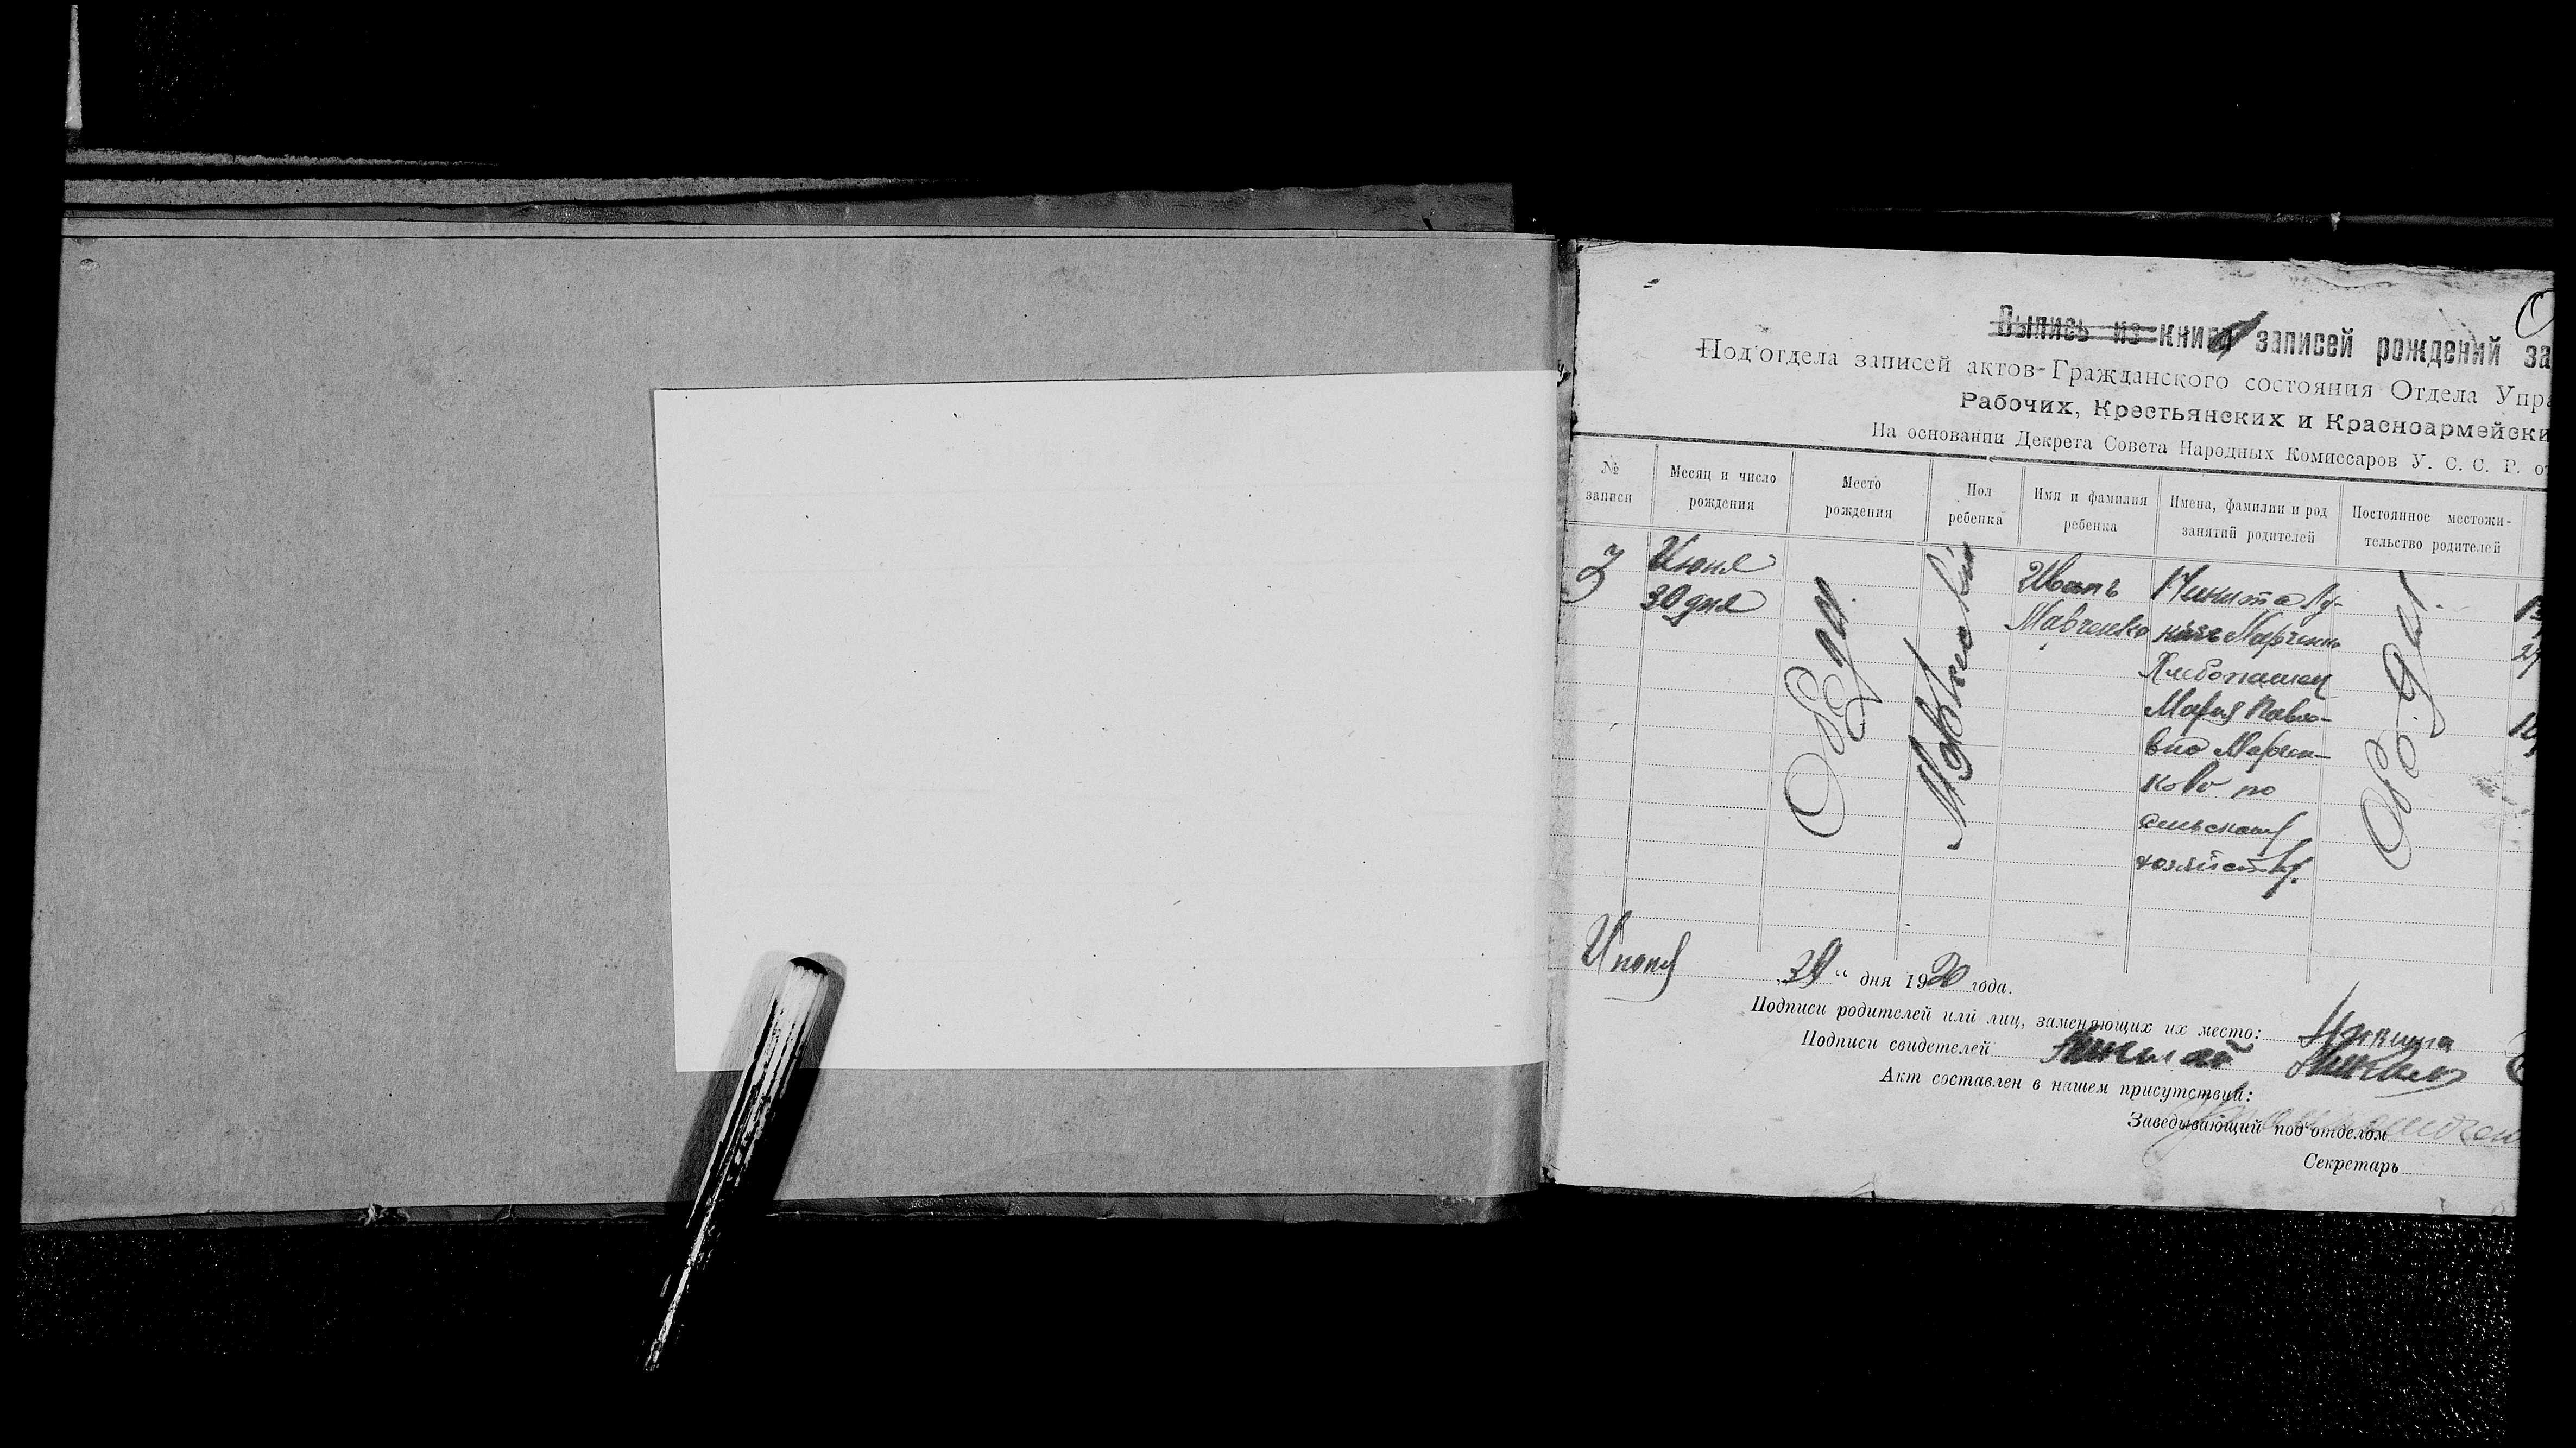 Выпись из книги записей рождений за
Подотдела записей актов Гражданского состояния Отдела Упра
Рабочих, Крестьянских и Красноармейски
На основании Декрета Совета Народных Комиссаров У. С. С. Р. от
№ записи
Месяц и число рождения
Место рождения
Пол ребенка
Имя и фамилия ребенка
Имена, фамилии и род занятий родителей
Постоянное местожи-
тельство родителей
3
Июня
30 дня
Мужской
Иванъ
Марченко
Никита Лу-
Марченко
Хлебопашец
Мария Павло-
вна Марчен-
кова по
сельскому
хозяйству.
Июня 30 " дня 1920 года.
Подписи родителей или лиц, заменяющих их место: Никита
Подписи свидетелей
Акт составлен в нашем присутствии:
Заведывающий под'отделом
Секретарь